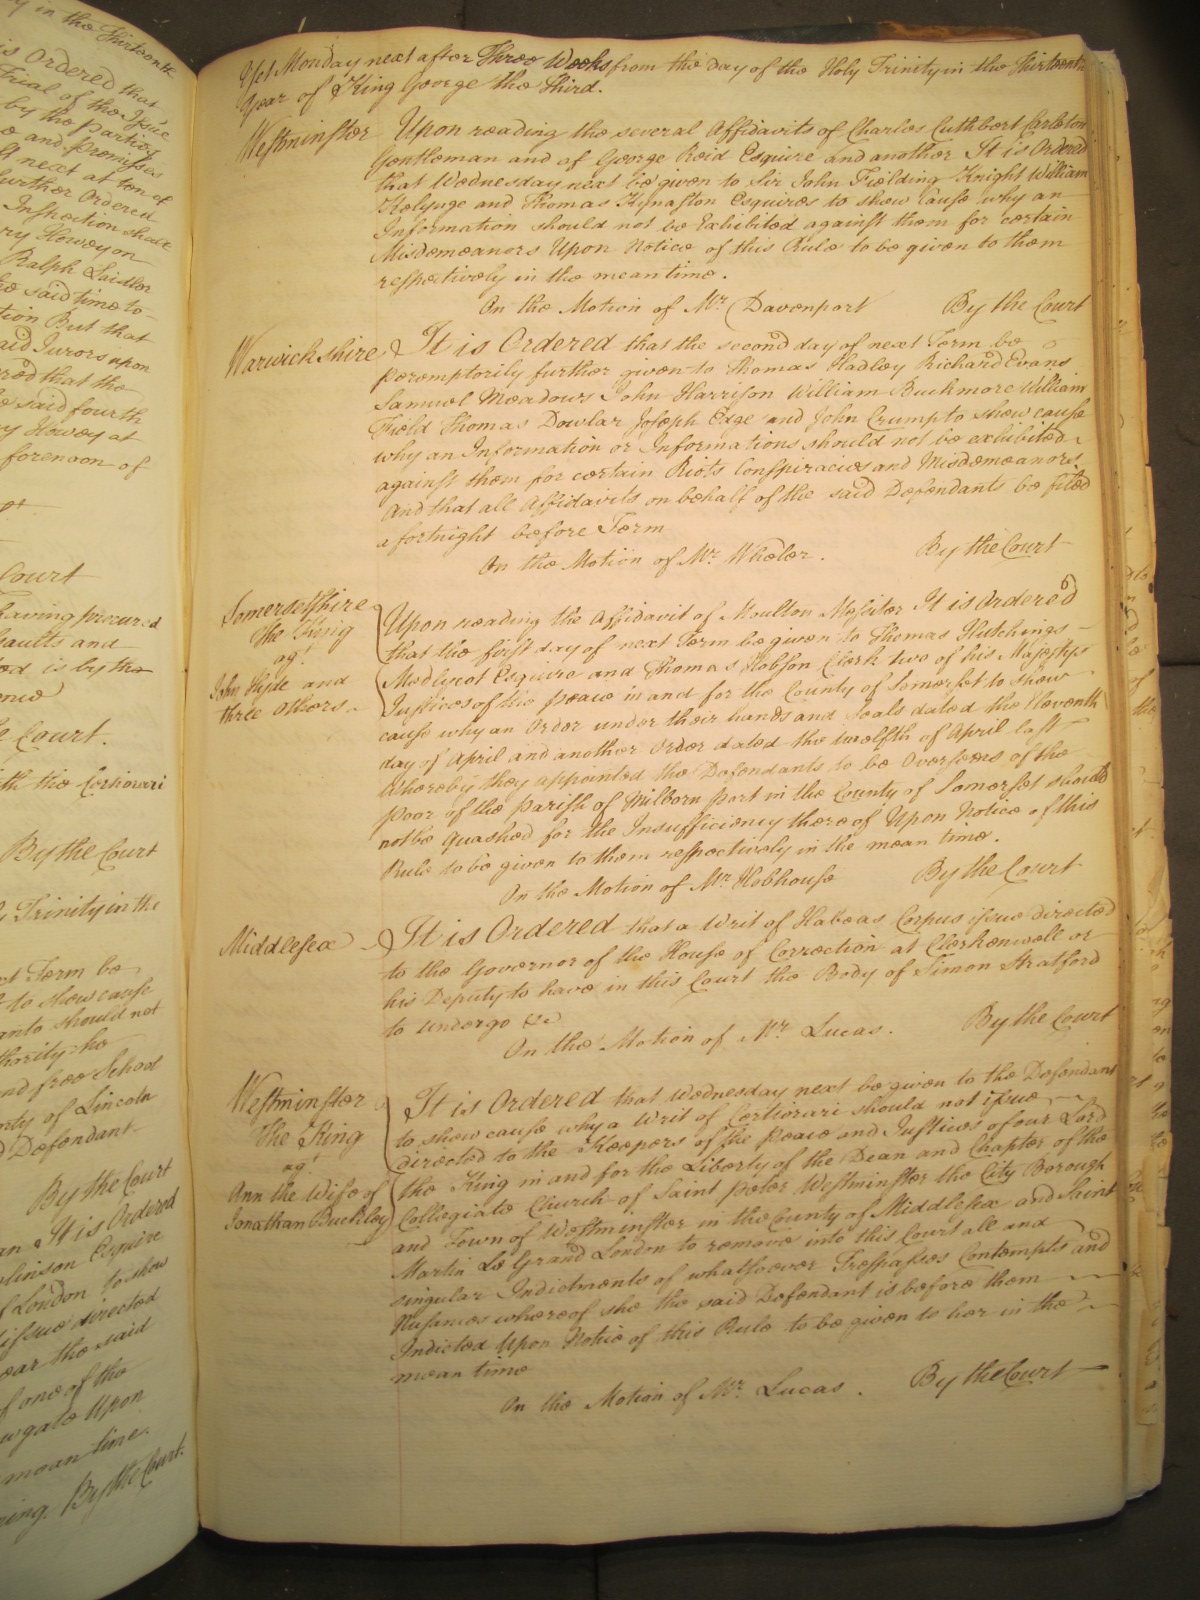 y in the Thirteenth
is Ordered that
Trial of the Issue
by the parties
e and premises
next at ten of
further Ordered
Inspection shall
ry Howey on
Ralph Laidler
he said time to
tion But that
aid Jurors upon
ered that the
e said fourth
ry Howey at
forenoon of
Court
having procured
saults and
ed is by the
By the Court
th the Certiorari
By the Court
Trinity in the
Term be
to shew cause
should not
thority he
nd free School
nty of Lincoln
Defendant
By the Court
an It is Ordered
linson Esquire
f London to shew
issue directed
ear the said
f one of the
wgate Upon
mean time.
By the Court.
Yet Monday next after Three Weeks from the day of the Holy Trinity in the Thirteenth
Year of King George the Third.
Westminster Upon reading the several Affidavits of Charles Cuthbert Carleton
Gentleman and of George Reid Esquire and another It is Ordered
that Wednesday next be given to Sir John Fielding Knight William
Kelynge and Thomas Kynaston Esquires to shew Cause why an
Information should not be Exhibited against them for certain
Misdemeanors Upon Notice of this Rule to be given to them
respectively in the mean time.
On the Motion of Mr. Davenport By the Court
Warwickshire It is Ordered that the second day of next Term be
peremptorily further given to Thomas Hadley Richard Evans
Samuel Meadows John Harrison William Buckmore William
Field Thomas Dowlar Joseph Edge and John Crump to shew cause
why an Information or Informations should not be exhibited
against them for certain Riots Conspiracies and Misdemeanors
And that all Affidavits on behalf of the said Defendants be filed
a fortnight before Term
On the Motion of Mr. Wheler. By the Court
Somersetshire
The King
agt.
John Hyde and
three others
Upon reading the Affidavit of Moulton Messiter It is Ordered
that the first day of next Term be given to Thomas Hutchings
Medlycot Esquire and Thomas Hobson Clerk two of his Majestys
Justices of the peace in and for the County of Somerset to shew
cause why an Order under their hands and Seals dated the Eleventh
day of April and another Order dated the twelfth of April last
Whereby they appointed the Defendants to be Overseers of the
Poor of the parish of Milborn port in the County of Somerset should
not be quashed for the Insufficiency thereof Upon Notice of this
Rule to be given to them respectively in the mean time.
On the Motion of Mr. Hobhouse By the Court
Middlesex It is Ordered that a Writ of Habeas Corpus issue directed
to the Governor of the House of Correction at Clerkenwell or
his Deputy to have in this Court the Body of Simon Stratford
to undergo &c
On the Motion of Mr. Lucas. By the Court
Westminster
The King
agt.
Ann the Wife of
Jonathan Buckley
It is Ordered that Wednesday next be given to the Defendant
to shew cause why a Writ of Certiorari should not issue
directed to the Keepers of the peace and Justices of our Lord
the King in and for the Liberty of the Dean and Chapter of the
Collegiate Church of Saint peter Westminster the City Borough
and Town of Westminster in the County of Middlesex and Saint
Martin Le Grand London to remove into this Court all and
singular Indictments of whatsoever Trespasses Contempts and
Nusances whereof she the said Defendant is before them
Indicted Upon Notice of this Rule to be given to her in the
mean time
On the Motion of Mr. Lucas. By the Court